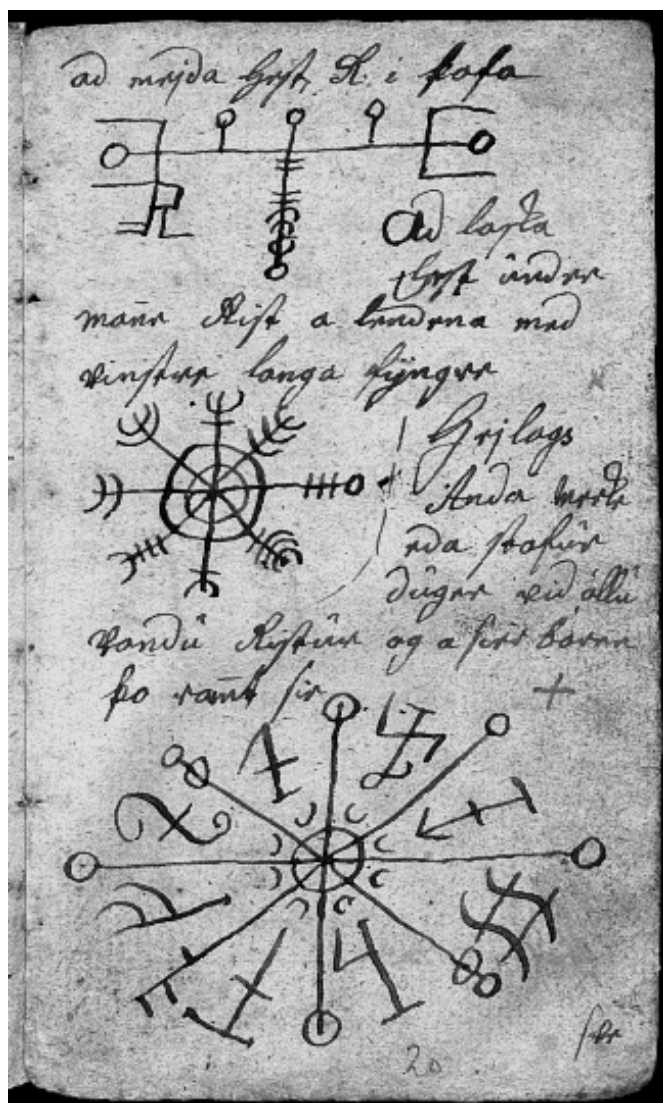 ad mejda hest R. i þofa
Ad laska
hest under
mann Rist a lendena med
vinstre langa fijngre
Hrjlags
Anda merke
eda stafur
duger vid öllu
vondu Ristur og a sierboren
þo ramt sie
20